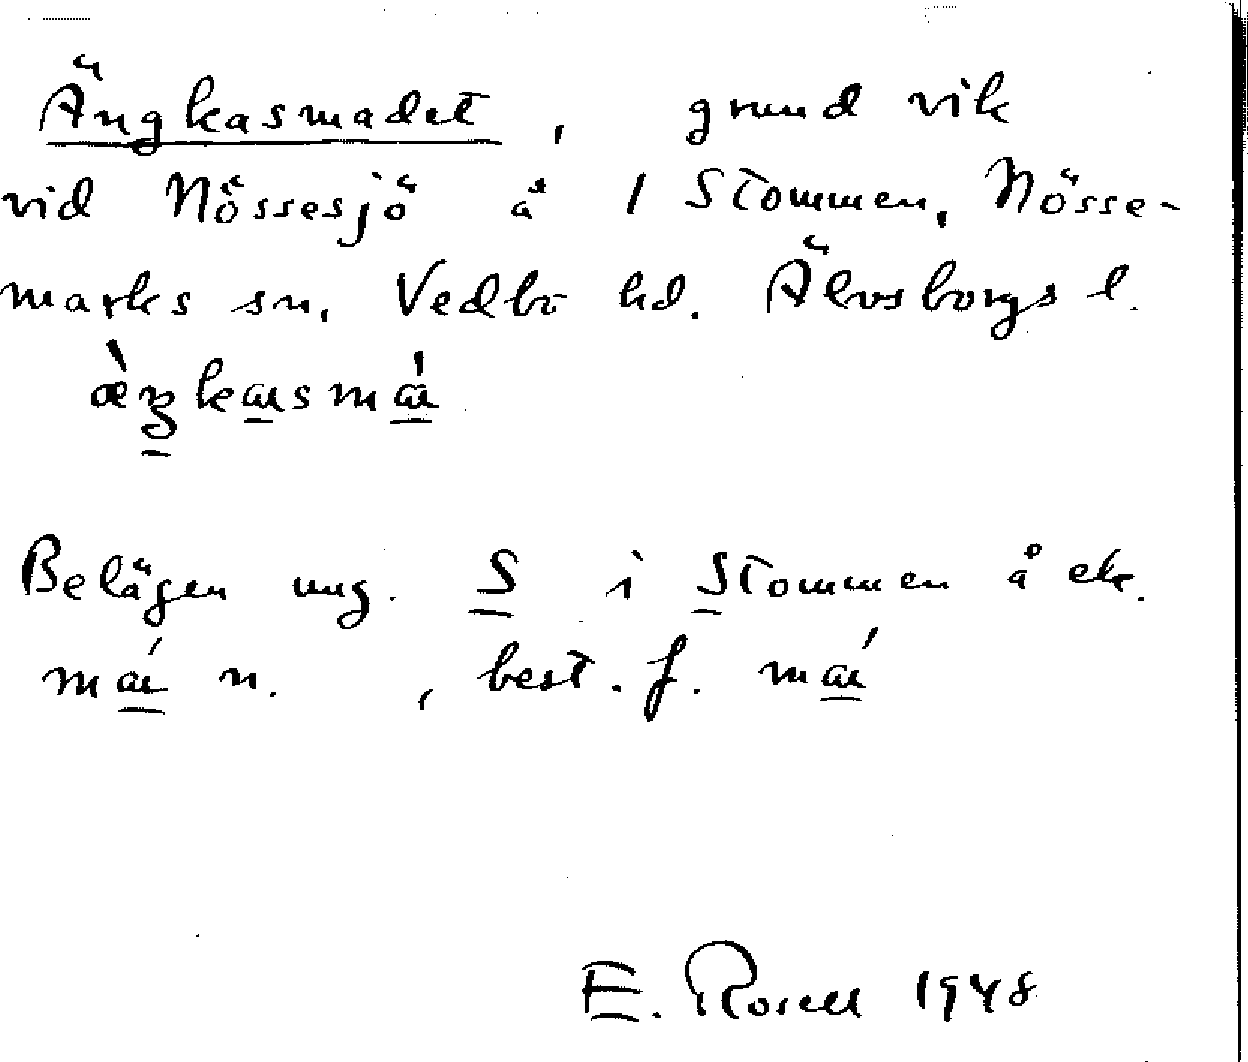 Ängkasmadet, grund vik
vid Nössesjö å 1 Stommen, Nösse-
marks sn, Vedbo hd. Älvsborgs l.
Belägen ung. S i Stommen å ek.
best. f.
E. Rosell 1948